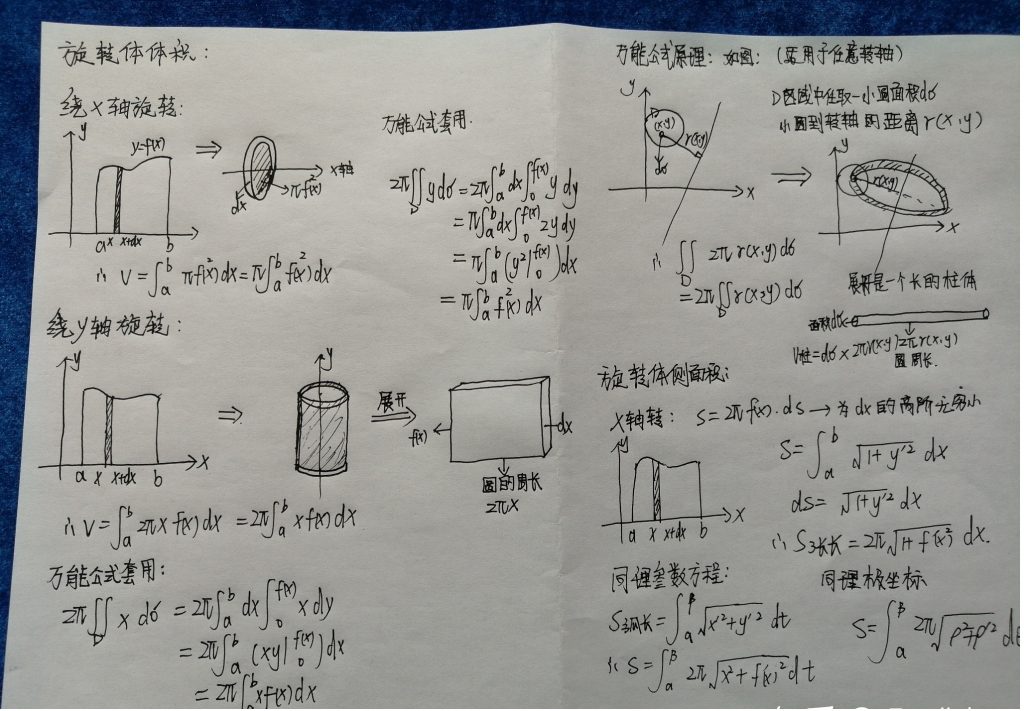 旋转体体积:
绕X轴旋转:
y
y=f(x)
⇒
x轴
πf²(x)
dx
a x x+dx b
x
∴ V=∫ₐᵇ πf²(x)dx=π∫ₐᵇ f²(x)dx
万能公式套用.
2π∬_D y dσ=2π∫ₐᵇdx∫₀^f(x) y dy
=π∫ₐᵇdx∫₀^f(x) 2y dy
=π∫ₐᵇ(y²|₀^f(x))dx
=π∫ₐᵇ f²(x)dx
绕y轴旋转:
y
a x x+dx b
x
⇒
y
展开
f(x)
dx
圆的周长
2πx
∴ V=∫ₐᵇ 2πx f(x)dx =2π∫ₐᵇ x f(x)dx
万能公式套用:
2π∬_D x dσ =2π∫ₐᵇ dx∫₀^f(x) x dy
=2π∫ₐᵇ (xy|₀^f(x))dx
=2π∫ₐᵇ xf(x)dx
万能公式原理: 如图: (适用于任意转轴)
D区域中任取一小圆面积dσ
小圆到转轴的距离r(x,y)
y
D
(x,y)
r(x,y)
dσ
x
⇒
y
r(x,y)
x
∴ ∬_D 2πr(x,y)dσ
=2π∬_D r(x,y)dσ
展开是一个长的柱体
面积dσ
2πr(x,y)
圆周长.
V柱=dσ×2πr(x,y)
旋转体侧面积:
X轴转: S=2πf(x).ds→为dx的高阶无穷小
y
a x x+dx b
x
S=∫ₐᵇ √(1+y'²) dx
ds=√(1+y'²) dx
∴ S弧长=2π√(1+f(x)²) dx.
同理参数方程:
S弧长=∫ₐᵝ √(x'²+y'²) dt
∴ S=∫ₐᵝ 2π√(x²+f(x)²)dt
同理极坐标
S=∫ₐᵝ 2π√(ρ²+ρ'²)